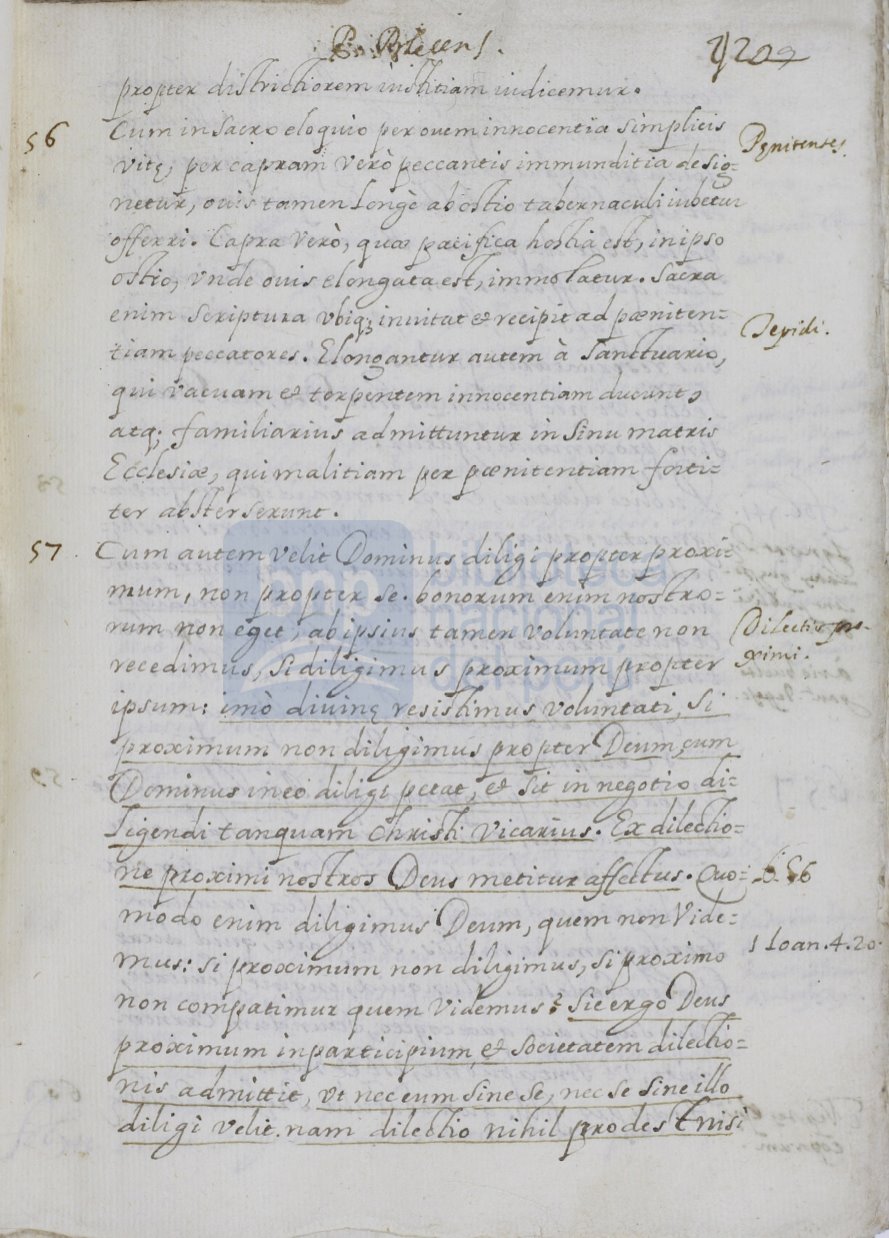 P. Blesens.
209
propter districtiorem iustitiam iudicemur.
56 Cum in sacro eloquio per ouem innocentia simplicis
Pęnitentes.
vitę, per capram verò peccantis immunditia desig-
netur, ouis tamen longè ab ostio tabernaculi iubetur
offerri. Capra verò, quæ pacifica hostia est, in ipso
ostio, vnde ouis elongata est, immolatur. Sacra
enim scriptura vbiq; inuitat & recipit ad pæniten-
Tepidi.
tiam peccatores. Elongantur autem à Sanctuario,
qui vacuam & torpentem innocentiam ducunt,
atq; familiarius admittuntur in sinu matris
Ecclesiæ, qui malitiam per pœnitentiam forti-
ter absterserunt.
57. Cum autem velit Dominus diligi propter proxi-
mum, non propter se. bonorum enim nostro-
rum non eget, ab ipsius tamen voluntate non
Dilectio pro-
ximi.
recedimus, si diligimus proximum propter
ipsum: imò diuinę resistimus voluntati, si
proximum non diligimus propter Deum, cum
Dominus in eo diligi petat, & sit in negotio di-
ligendi tanquam Christi vicarius. Ex dilectio-
ne proximi nostros Deus metitur affectus. Quo-
modo enim diligimus Deum, quem non vide-
1 Ioan. 4. 20.
mus: si proximum non diligimus, si proximo
non compatimur quem videmus? Sic ergo Deus
proximum in participium & societatem dilectio-
nis admittit, vt nec eum sine se, nec se sine illo
diligi velit. nam dilectio nihil prodest nisi
biblioteca
nacional
del perú
bnp